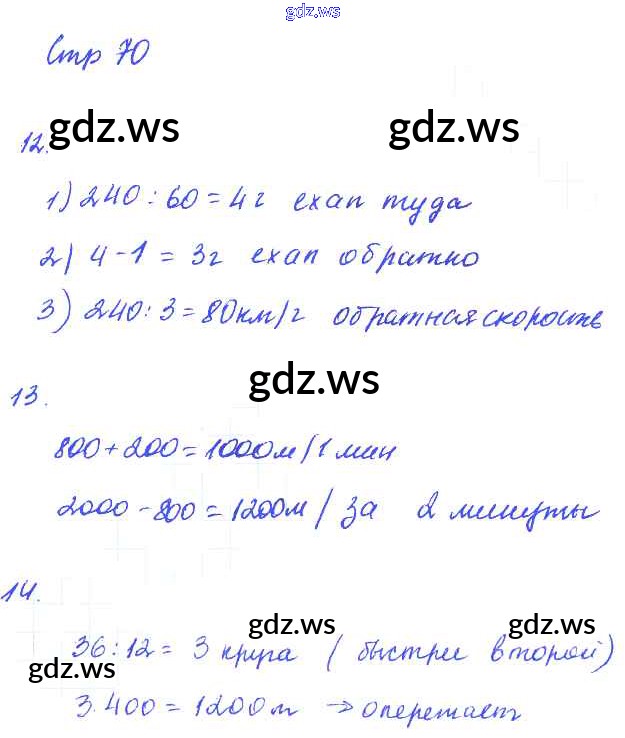 gdz.ws
Стр 70
gdz.ws gdz.ws
12.
1) 240 : 60 = 4 г ехап туда
2) 4 - 1 = 3 г ехап обратно
3) 240 : 3 = 80 км/г обратная скорость
gdz.ws
13.
800 + 200 = 1000 м / 1 мин
2000 - 800 = 1200 м / за 2 минуты
14.
gdz.ws gdz.ws
36 : 12 = 3 круга ( быстрее второй)
gdz.ws
3 · 400 = 1200 м → опережает